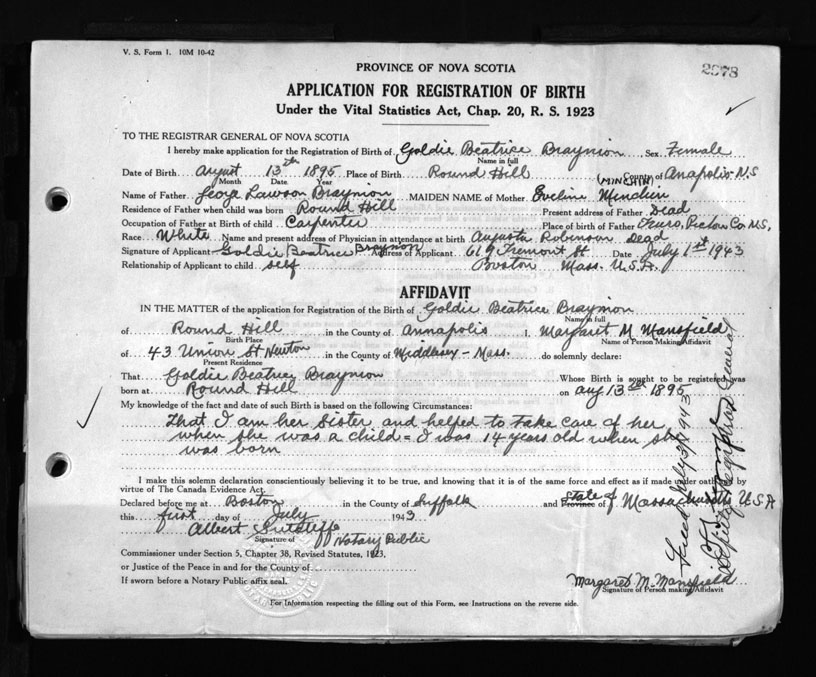 V. S. Form 1. 10M 10-42
2978
PROVINCE OF NOVA SCOTIA
APPLICATION FOR REGISTRATION OF BIRTH
Under the Vital Statistics Act, Chap. 20, R. S. 1923
TO THE REGISTRAR GENERAL OF NOVA SCOTIA
I hereby make application for the Registration of Birth of Goldie Beatrice Braynion Sex Female
Name in full
Date of Birth August 13th 1895 Place of Birth Round Hill County of Anapolis N.S
Month Date Year
(MINSHIN)
Name of Father Lawson Braynion MAIDEN NAME of Mother Eveline
Residence of Father when child was born Round Hill Present address of Father Dead
Occupation of Father at Birth of child Carpenter Place of birth of Father Truro, Pictou Co N.S.
Race White Name and present address of Physician in attendance at birth Augusta Robinson Dead
Signature of Applicant Goldie Beatrice Braynion Address of Applicant 619 Tremont St Date July 1st 1943
Relationship of Applicant to child self Boston Mass. U.S.A.
AFFIDAVIT
IN THE MATTER of the application for Registration of the Birth of Goldie Beatrice Braynion
Name in full
of Round Hill in the County of Annapolis I, Margaret M Mansfield
Birth Place Name of Person Making Affidavit
of 43 Union St Newton in the County of Middlesex - Mass. do solemnly declare:
Present Residence
That Goldie Beatrice Braynion Whose Birth is sought to be registered was
born at Round Hill on Aug 13th 1895
My knowledge of the fact and date of such Birth is based on the following Circumstances:
That I am her Sister and helped to Take care of her
when she was a child = I was 14 years old when she
was born
I make this solemn declaration conscientiously believing it to be true, and knowing that it is of the same force and effect as if made under oath by
virtue of The Canada Evidence Act.
Declared before me at Boston in the County of Suffolk and Province of State of Massachusetts U.S.A
this first day of July 1943
Albert Sutcliffe Notary Public
Signature of
Commissioner under Section 5, Chapter 38, Revised Statutes, 1923,
or Justice of the Peace in and for the County of
If sworn before a Notary Public affix seal.
Margaret M. Mansfield
Signature of Person making Affidavit
For Information respecting the filling out of this Form, see Instructions on the reverse side.
Filed July 3/1943
Deputy Registrar General